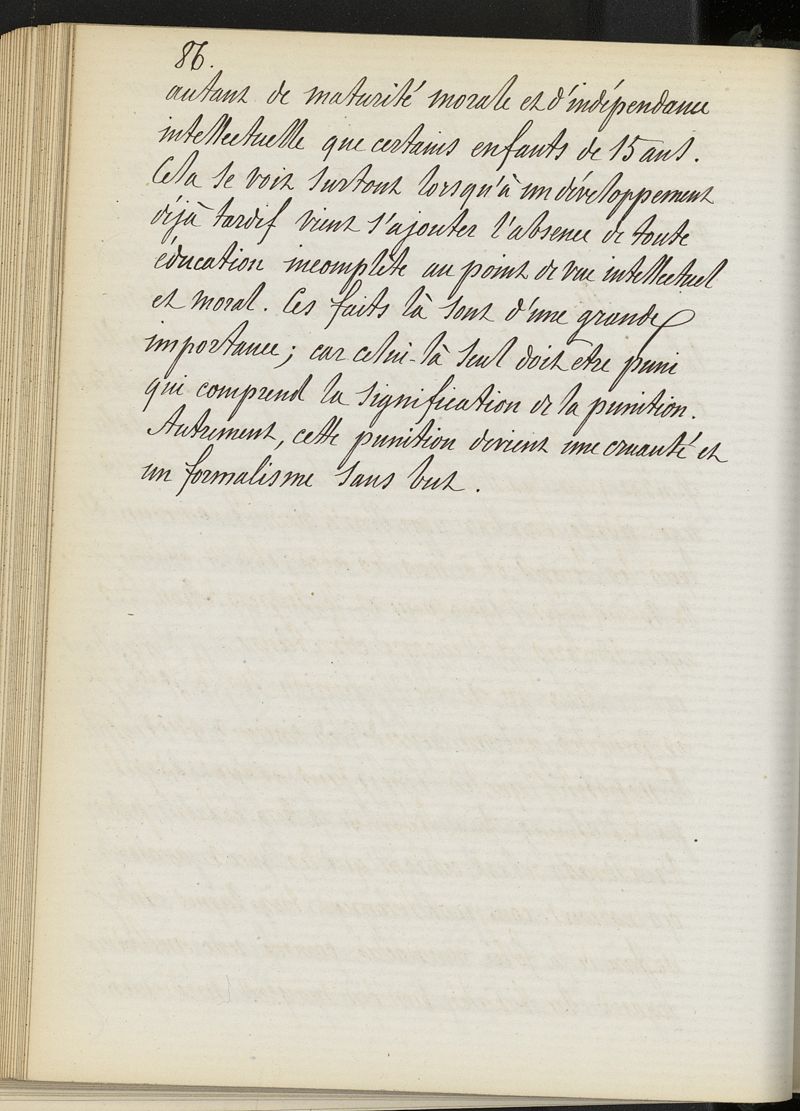 86.
autant de maturité morale et d'indépendance
intellectuelle que certains enfants de 15 ans.
Cela se voit surtout lorsqu'à un développement
déjà tardif vient s'ajouter l'absence de toute
éducation incomplète au point de vue intellectuel
et moral. Ces faits là sont d'une grande
importance; car celui-là seul doit être puni
qui comprend la signification de la punition.
Autrement, cette punition devient une cruauté et
un formalisme sans but.